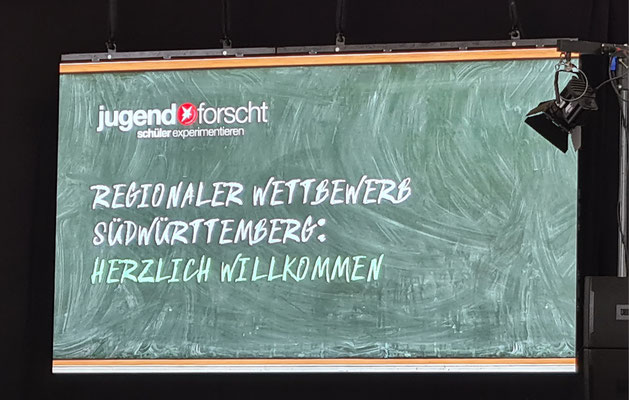 jugend forscht
schüler experimentieren
REGIONALER WETTBEWERB
SÜDWÜRTTEMBERG:
HERZLICH WILLKOMMEN